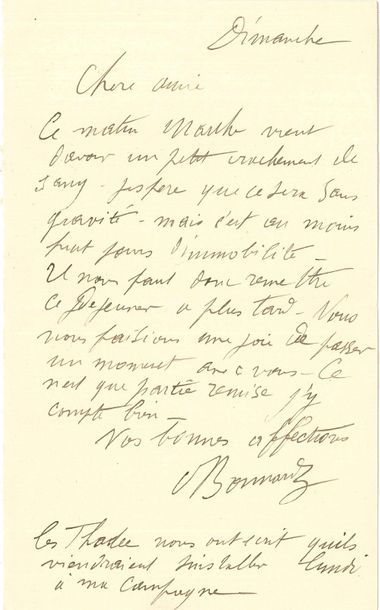 Dimanche
Chère amie
Ce matin Marthe vient
d'avoir un petit crachement de
sang - j'espère que ce sera sans
gravité - mais c'est au moins
huit jours d'immobilité -
Il nous faut donc remettre
ce déjeuner à plus tard - Nous
nous faisions une joie de passer
un moment avec vous - Ce
n'est que partie remise j'y
compte bien -
Vos bonnes affections
Bonnard
les Thadée nous ont écrit qu'ils
viendraient s'installer lundi
à ma campagne -